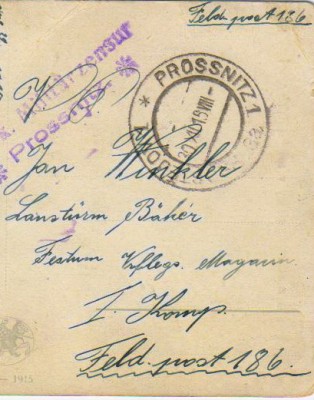 Feldpost 186
k. Militärzensur
* Prossnitz *
* PROSSNITZ 1
Jan Winkler
Lansturm Bäker
Festum Vflegs. Magazin
I. Komp.
Feld. post 186.
– 1915